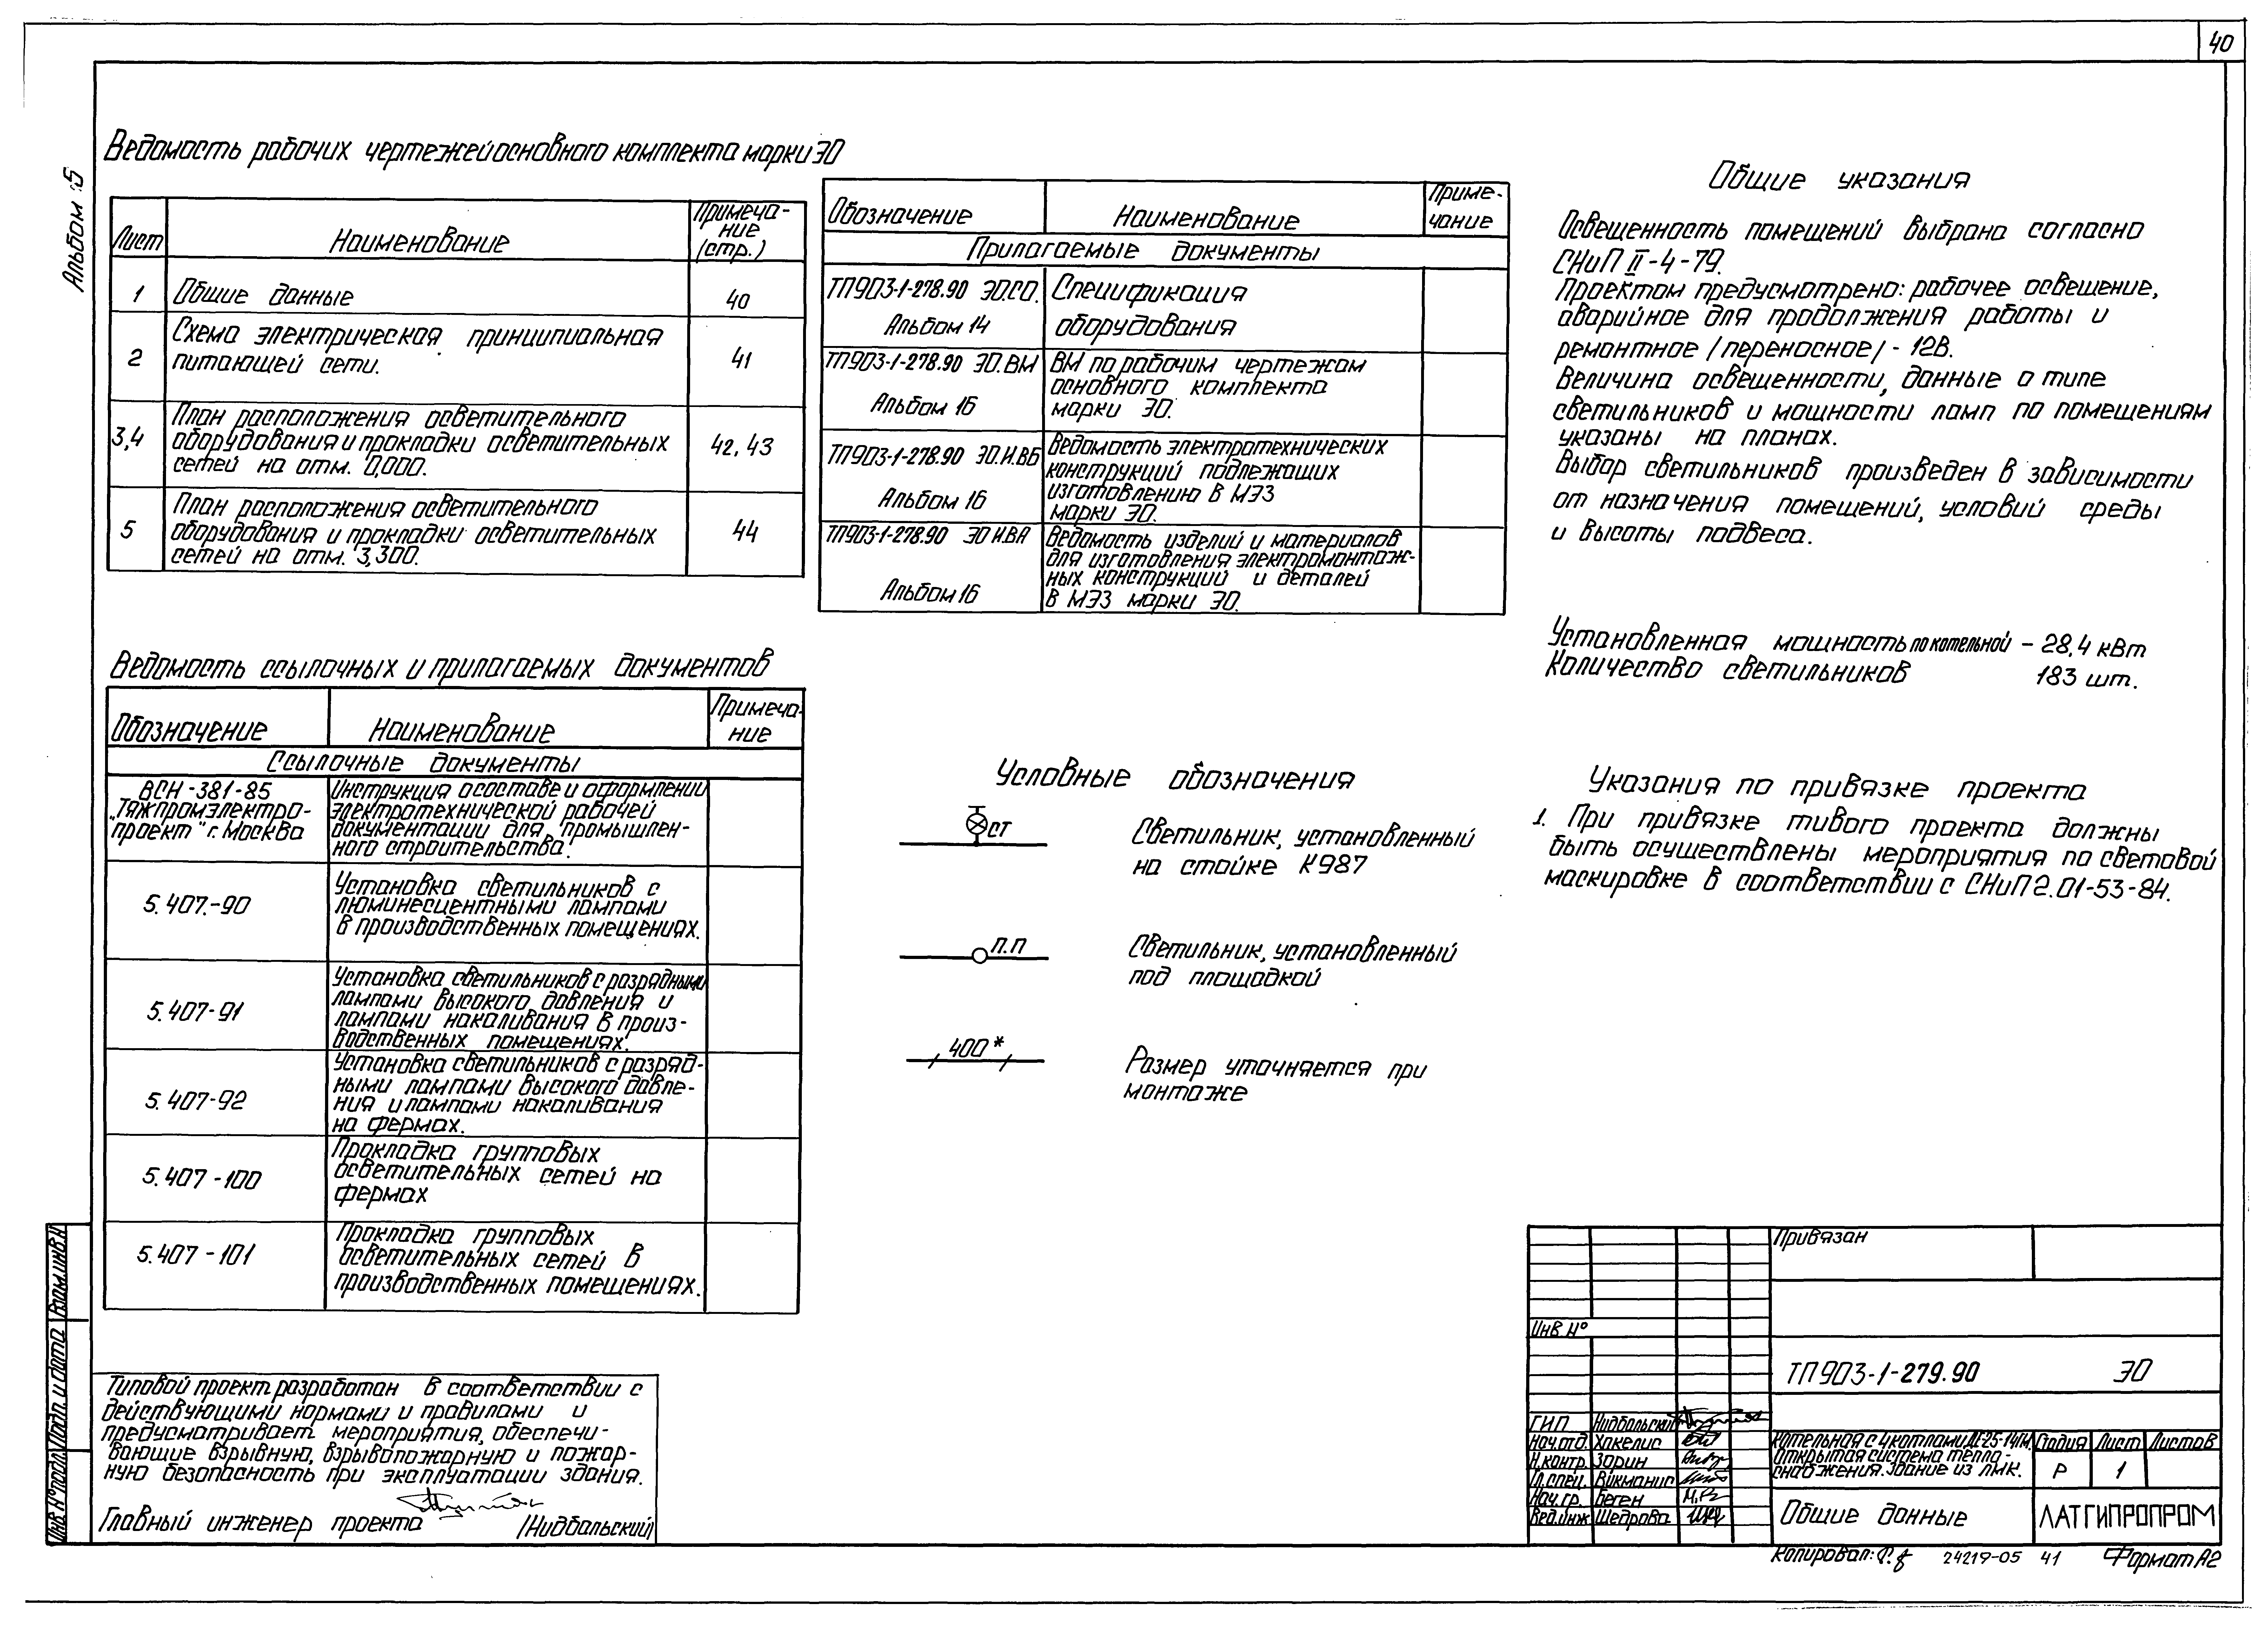 40
Альбом 5
Ведомость рабочих чертежей основного комплекта марки ЭО
Лист
Наименование
Примеча-
ние
(стр.)
1
Общие данные
40
2
Схема электрическая принципиальная
питающей сети.
41
3,4
План расположения осветительного
оборудования и прокладки осветительных
сетей на отм. 0,000.
42, 43
5
План расположения осветительного
оборудования и прокладки осветительных
сетей на отм. 3,300.
44
Ведомость ссылочных и прилагаемых документов
Обозначение
Наименование
Примеча-
ние
Ссылочные документы
ВСН-381-85
"Тяжпромэлектро-
проект" г. Москва
Инструкция о составе и оформлении
электротехнической рабочей
документации для промышлен-
ного строительства.
5.407.-90
Установка светильников с
люминесцентными лампами
в производственных помещениях.
5.407-91
Установка светильников с разрядными
лампами высокого давления и
лампами накаливания в произ-
водственных помещениях.
5.407-92
Установка светильников с разряд-
ными лампами высокого давле-
ния и лампами накаливания
на фермах.
5.407-100
Прокладка групповых
осветительных сетей на
фермах
5.407-101
Прокладка групповых
осветительных сетей в
производственных помещениях.
Типовой проект разработан в соответствии с
действующими нормами и правилами и
предусматривает мероприятия, обеспечи-
вающие взрывную, взрывопожарную и пожар-
ную безопасность при эксплуатации здания.
Главный инженер проекта /Нидбальский/
Обозначение
Наименование
Приме-
чание
Прилагаемые документы
ТП903-1-278.90 ЭО.СО.
Альбом 14
Спецификация
оборудования
ТП903-1-278.90 ЭО.ВМ
Альбом 16
ВМ по рабочим чертежам
основного комплекта
марки ЭО.
ТП903-1-278.90 ЭО.И.ВБ
Альбом 16
Ведомость электротехнических
конструкций подлежащих
изготовлению в МЭЗ
марки ЭО.
ТП903-1-278.90 ЭО И.ВА
Альбом 16
Ведомость изделий и материалов
для изготовления электромонтаж-
ных конструкций и деталей
в МЭЗ марки ЭО.
Условные обозначения
ст
Светильник, установленный
на стойке К987
п.п
Светильник, установленный
под площадкой
400*
Размер уточняется при
монтаже
Общие указания
Освещенность помещений выбрана согласно
СНиП II-4-79.
Проектом предусмотрено: рабочее освещение,
аварийное для продолжения работы и
ремонтное /переносное/ - 12В.
Величина освещенности, данные о типе
светильников и мощности ламп по помещениям
указаны на планах.
Выбор светильников произведен в зависимости
от назначения помещений, условий среды
и высоты подвеса.
Установленная мощность по котельной - 28,4 кВт
Количество светильников 183 шт.
Указания по привязке проекта
1. При привязке тивого проекта должны
быть осуществлены мероприятия по световой
маскировке в соответствии с СНиП 2.01-53-84.
Привязан
Инв №
ТП903-1-279.90 ЭО
ГИП Нидбальский
Нач.отд. Хакелис
Н.контр. Зорин
Гл.спец. Викманис
Нач.гр. Беген
Вед.инж Щедрова
Котельная с 4 котлами ДЕ-25-14ГМ.
Открытая система тепло-
снабжения. Здание из ЛМК.
Стадия Лист Листов
Р 1
Общие данные
ЛАТГИПРОПРОМ
Копировал: 24219-05 41 Формат А2
Инв. № подл. Подп. и дата Взам.инв.№